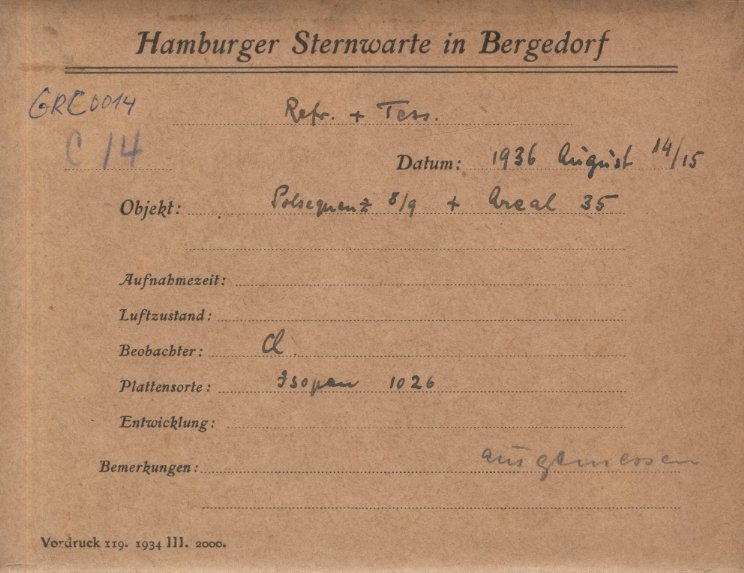 Hamburger Sternwarte in Bergedorf
GRC0014
Refr. + Tess.
C 14
Datum: 1936 August 14/15
Objekt: Polsequenz 8/9 + Areal 35
Aufnahmezeit:
Luftzustand:
Beobachter:
Plattensorte: Isopan 1026
Entwicklung:
Bemerkungen: ausgemessen
Vordruck 119. 1934 III. 2000.